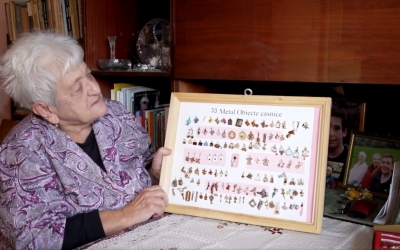 23 Metal Obiecte casnice